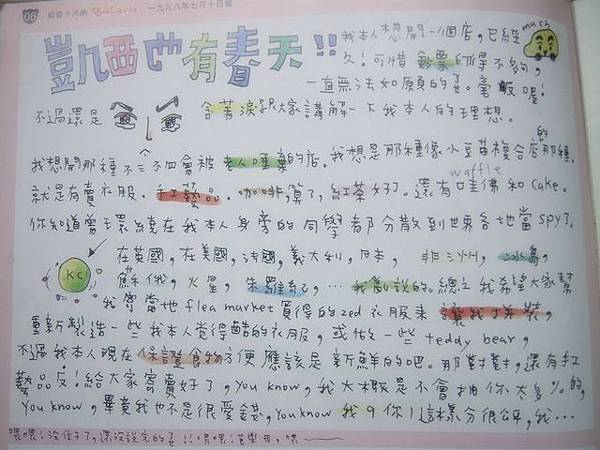 06 給香少片的 Balana 一九九八年七月十日報
凱西也有春天!!
我本人想開一個店,已經 much
久!可惜鈔票的得不夠,
一直無法如願的ㄝ。毫厭喔!
不過還是 含著淚跟大家講解一下我本人的理想。
我想開那種不三不四會被老人唾棄的店。我想是那種像小豆苗複合店的那種.
就是有賣衣服.手工藝品.咖啡,算了,紅茶好了。還有哇佛 waffle 和 cake。
你知道曾環繞在我本人身旁的同學都分散到世界各地當 spy了.
在英國,在美國,法國,義大利,日本, 非三洲, 冰島,
K.C 蘇俄,火星,朱羅紀,…我亂說的。總之我希望大家幫
我寄當地 flea market 買得的 zed 衣服來讓我拆裝,
重新製造一些我本人覺得酷的衣服,或做一些 teddy bear,
不過我本人現在保證食物方便應該是新鮮的吧。那對對,還有手工
藝品反!給大家寄賣好了,you know,我大概是不會抽你太多%的,
you know,畢竟我也不是很愛錢,you know 我9你1這樣分很公平,我…
喂喂!沒位子了,還沒說完的ㄝ!!喂喂!芭樂西,喂~~